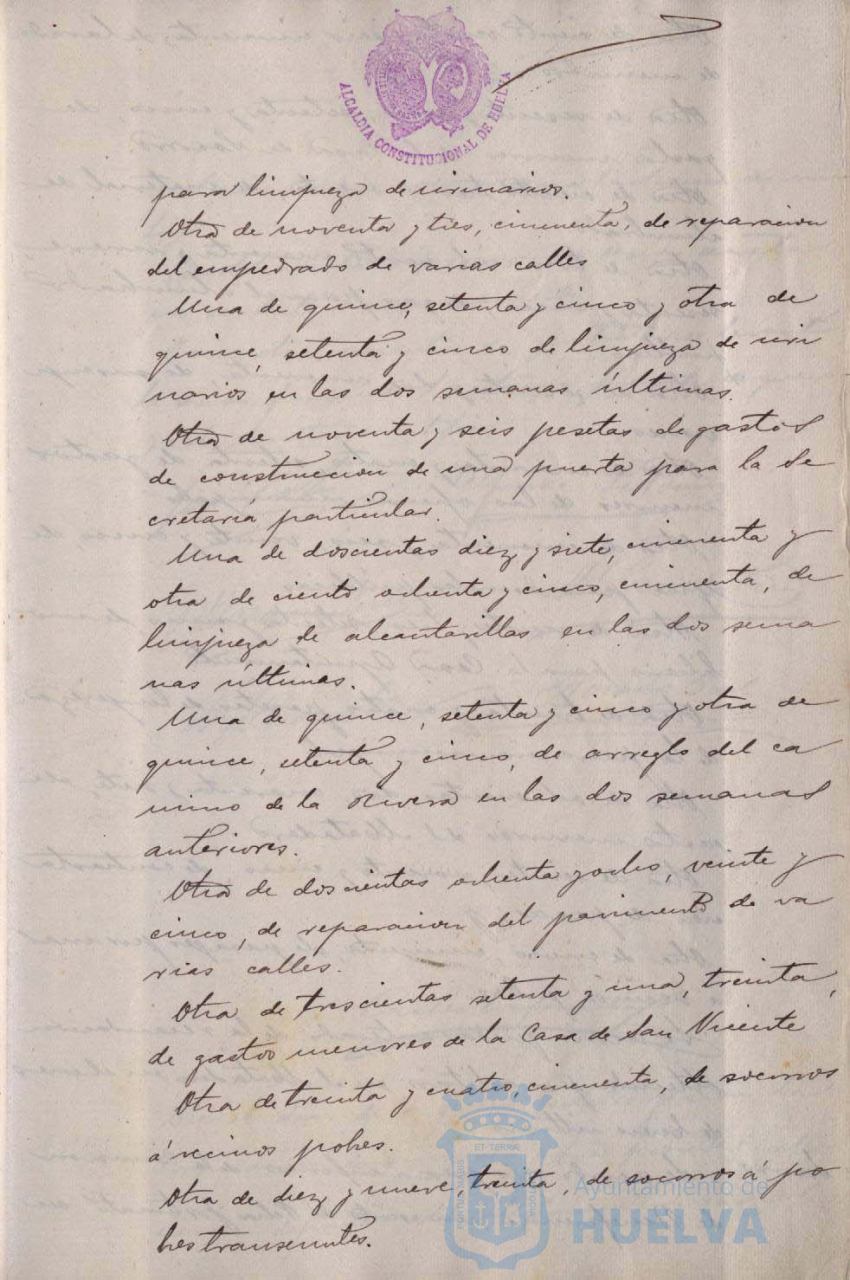 ALCALDIA CONSTITUCIONAL DE HUELVA
para limpieza de urinarios.
Otra de noventa y tres, cincuenta, de reparacion
del empedrado de varias calles
Una de quince, setenta y cinco y otra de
quince, setenta y cinco de limpieza de uri
narios en las dos semanas últimas.
Otra de noventa y seis pesetas de gastos
de construccion de una puerta para la Se
cretaría particular.
Una de doscientas diez y siete, cincuenta y
otra de ciento ochenta y cinco, cincuenta, de
limpieza de alcantarillas en las dos sema
nas últimas.
Una de quince, setenta y cinco y otra de
quince, setenta y cinco, de arreglo del ca
mino de la Rivera en las dos semanas
anteriores.
Otra de doscientas ochenta y ocho, veinte y
cinco, de reparacion del pavimento de va
rias calles.
Otra de trescientas setenta y una, treinta,
de gastos menores de la Casa de San Vicente
Otra de treinta y cuatro, cincuenta, de socorros
á vecinos pobres.
Otra de diez y nueve, treinta, de socorros á po
bres transeuntes.
ET TERRA
Ayuntamiento de
HUELVA